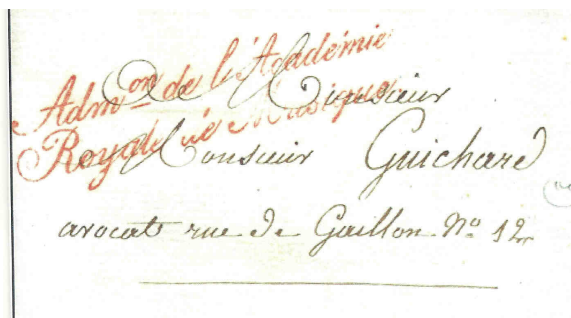 Admon de l'Académie
Royale de Musique
A Monsieur
Monsieur Guichard
avocat rue de Gaillon No 12